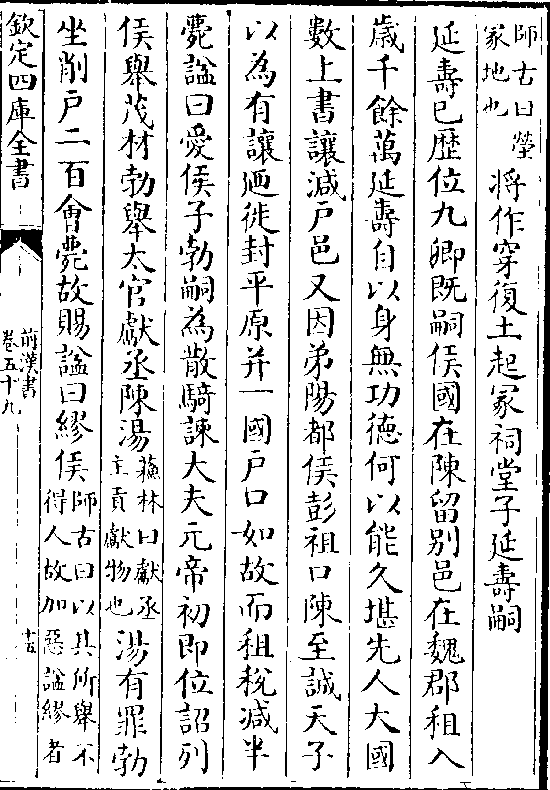 師古曰塋
冢地也
將作穿復土起冢祠堂子延壽嗣
延壽已歷位九卿既嗣侯國在陳留別邑在魏郡租入
歲千餘萬延壽自以身無功德何以能久堪先人大國
數上書讓減戶邑又因弟陽都侯彭祖口陳至誠天子
以為有讓廼徙封平原并一國戶口如故而租稅減半
薨諡曰愛侯子勃嗣為散騎諫大夫元帝初即位詔列
侯舉茂材勃舉大官獻丞陳湯
蘇林曰獻丞
主貢獻物也
湯有罪勃
坐削戶二百會薨故賜諡曰繆侯
師古曰以其所舉不
得人故加惡諡繆者
欽定四庫全書
前漢書
卷五十九
十五